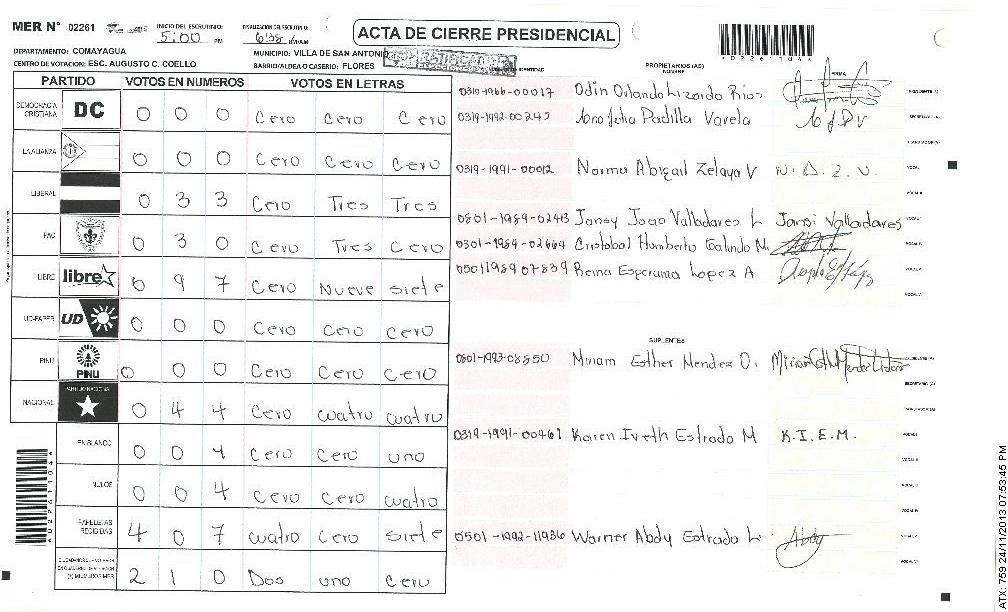 MER N° 02261 INICIO DEL ESCRUTINIO: 5:00 PM FINALIZACION DEL ESCRUTINIO: 6:38
ACTA DE CIERRE PRESIDENCIAL
DEPARTAMENTO: COMAYAGUA MUNICIPIO: VILLA DE SAN ANTONIO
CENTRO DE VOTACION: ESC. AUGUSTO C. COELLO BARRIO/ALDEA O CASERIO: FLORES
PARTIDO VOTOS EN NUMEROS VOTOS EN LETRAS
DEMOCRACIA CRISTIANA DC 0 0 0 Cero Cero Cero
LA ALIANZA 0 0 0 Cero Cero Cero
LIBERAL 0 3 3 Cero Tres Tres
PAC 0 3 0 Cero Tres Cero
LIBRE libre 0 9 7 Cero Nueve siete
UD-FAPER UD 0 0 0 Cero Cero Cero
PINU PNU 0 0 0 Cero Cero Cero
NACIONAL PARTIDO NACIONAL 0 4 4 Cero cuatro cuatro
EN BLANCO 0 0 1 Cero Cero uno
NULOS 0 0 4 Cero Cero cuatro
PAPELETAS RECIBIDAS 4 0 7 cuatro Cero siete
2 1 0 Dos uno Cero
PROPIETARIOS (AS)
NOMBRE FIRMA
0319-1966-00017 Odin Orlando Lizardo Rios
0319-1992-00245 Padilla Varela
0319-1991-00012 Norma Abigail Zelaya V N. A. Z. V.
0801-1989-02443 Jansy Joao Valladares L Jansi Valladares
0301-1984-02664 Cristobal Humberto Galindo M.
0501198907839 Reina Esperanza Lopez A
SUPLENTES
0801-1993-08850 Miriam Esther Mendez O.
0319-1991-00461 Karen Iveth Estrado M K.I.E.M.
0501-1992-11936 Warner Abdy Estrado L. Abdy
*02261104*
ATX: 759 24/11/2013 07:53:45 PM